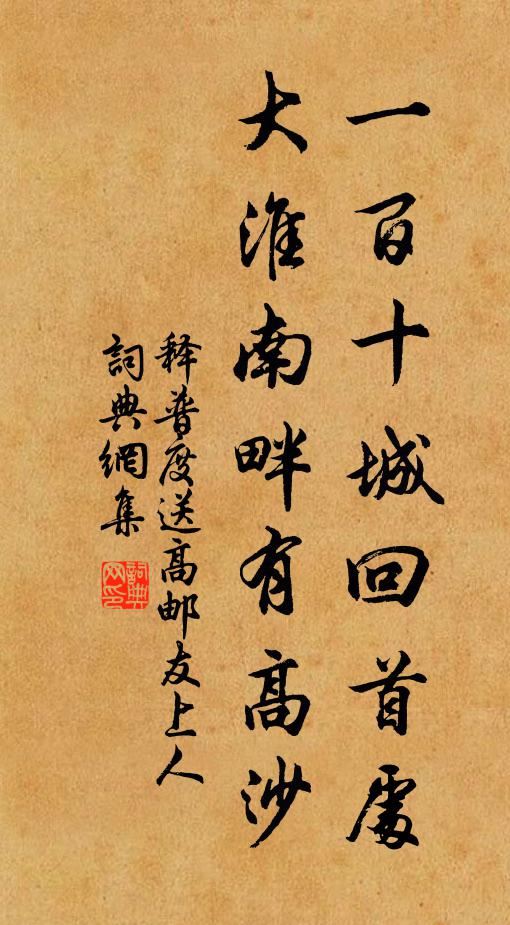 一百十城回首處
大淮南畔有高沙
释普度送高邮友上人
詞典網集
詞典网印